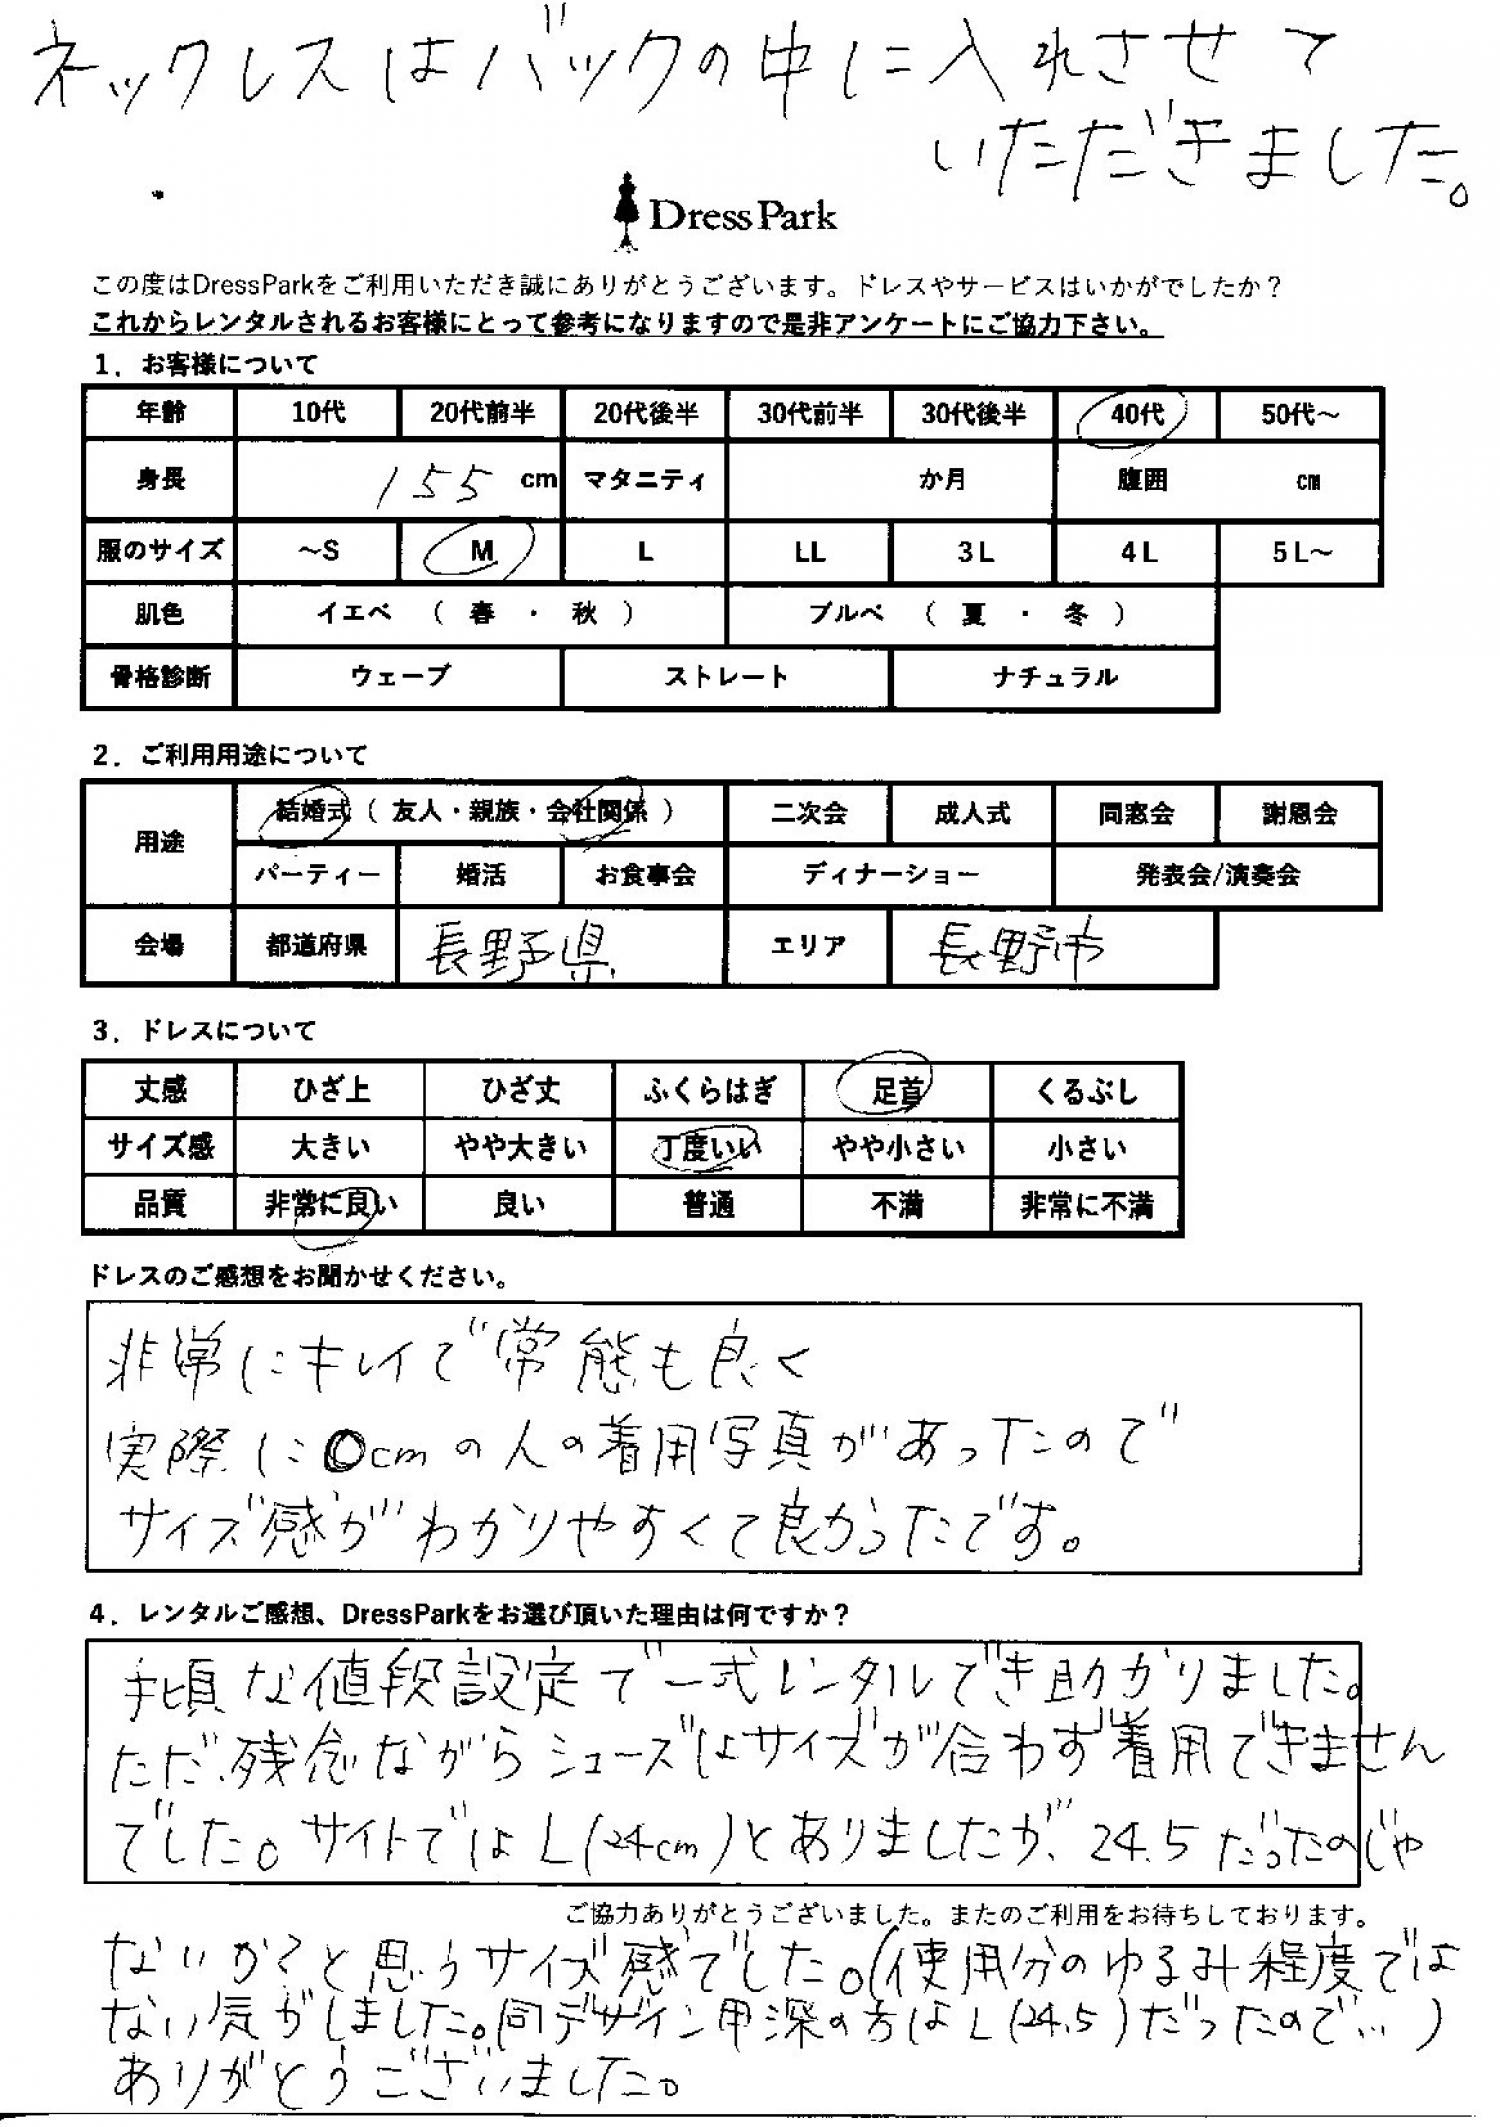 ネックレスはバックの中に入れさせて
いただきました。
DressPark
この度はDressParkをご利用いただき誠にありがとうございます。ドレスやサービスはいかがでしたか？
これからレンタルされるお客様にとって参考になりますので是非アンケートにご協力下さい。
1．お客様について
年齢 10代 20代前半 20代後半 30代前半 30代後半 40代 50代～
身長 155 cm マタニティ か月 腹囲 cm
服のサイズ ～S M L LL 3L 4L 5L～
肌色 イエベ （ 春 ・ 秋 ） ブルベ （ 夏 ・ 冬 ）
骨格診断 ウェーブ ストレート ナチュラル
2．ご利用用途について
用途 結婚式（ 友人・親族・会社関係 ） 二次会 成人式 同窓会 謝恩会
パーティー 婚活 お食事会 ディナーショー 発表会/演奏会
会場 都道府県 長野県 エリア 長野市
3．ドレスについて
丈感 ひざ上 ひざ丈 ふくらはぎ 足首 くるぶし
サイズ感 大きい やや大きい 丁度いい やや小さい 小さい
品質 非常に良い 良い 普通 不満 非常に不満
ドレスのご感想をお聞かせください。
非常にキレイで常態も良く
実際に0cmの人の着用写真があったので
サイズ感がわかりやすくて良かったです。
4．レンタルご感想、DressParkをお選び頂いた理由は何ですか？
手頃な値段設定で一式レンタルでき助かりました。
ただ、残念ながらシューズはサイズが合わず着用できません
でした。サイトではL(24cm)とありましたが、24.5だったのじゃ
ご協力ありがとうございました。またのご利用をお待ちしております。
ないか？と思うサイズ感でした。(使用分のゆるみ程度では
ない気がしました。同デザイン甲深の方はL(24.5)だったので…)
ありがとうございました。